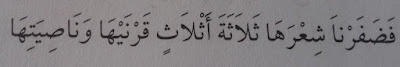 فَضَفَرْنَا شِعْرَهَا ثَلَاثَةَ أَثْلَاثٍ قَرْنَيْهَا وَنَاصِيَتِهَا